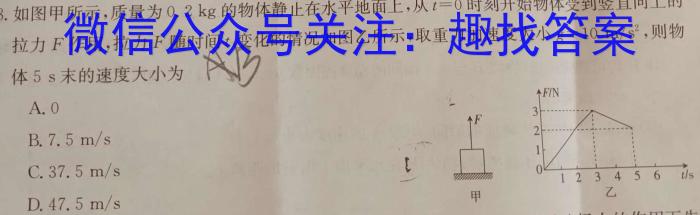 3.如图甲所示,质量为0.2kg的物体静止在水平地面上,从t=0时刻开始物体受到竖直向上的
拉力F 拉力F随时间 变化的情况如图乙所示,取重力 速度大小 10 m/s²,则物
微信公众号关注:趣找答案
体5 s末的速度大小为
A. 0
B. 7.5 m/s
C. 37.5 m/s
D. 47.5 m/s
F
甲
F/N
3
2
1
0
1 2 3 4 5 6 t/s
乙